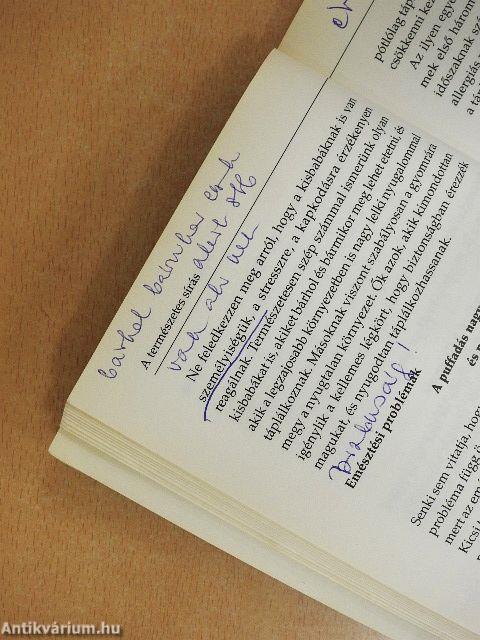 pótlólag táp
csökkenni kez
Az ilyen egye
mek első három
időszaknak sz
allergiás
a táp
bárhol bármikor
A természetes sírás
van aki
Ne feledkezzen meg arról, hogy a kisbabáknak is van
személyiségük, a stresszre, a kapkodásra érzékenyen
reagálnak. Természetesen szép számmal ismerünk olyan
kisbabákat is, akiket bárhol és bármikor meg lehet etetni, és
akik a legzajosabb környezetben is nagy lelki nyugalommal
táplálkoznak. Másoknak viszont szabályosan a gyomrára
megy a nyugtalan környezet. Ők azok, akik kimondottan
igénylik a kellemes légkört, hogy biztonságban érezzék
magukat, és nyugodtan táplálkozhassanak.
Emésztési problémák
A puffadás nagy
és
Senki sem vitatja, hogy
probléma függ ö
mert az em
Kicsi
Antikvárium.hu